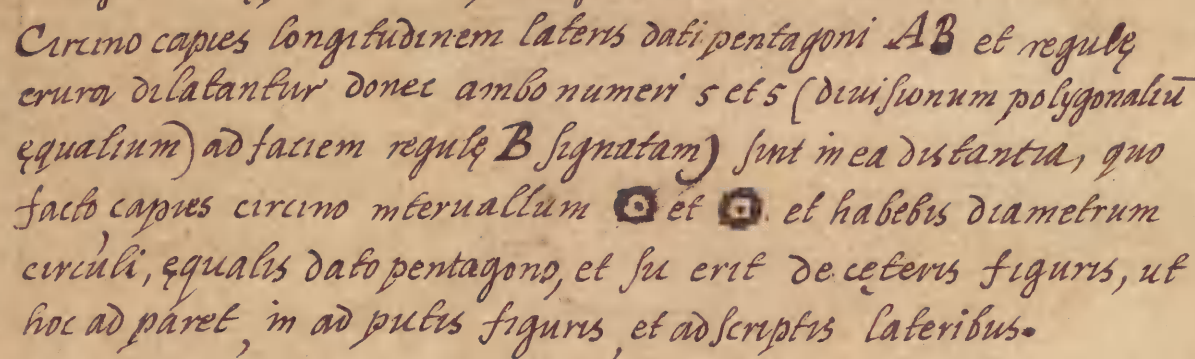 Circino capies longitudinem lateris dati pentagoni AB et regulę
crura dilatantur donec ambo numeri 5 et 5 (diuisionum polygonaliū
ęqualium) ad faciem regulę B signatam) sint in ea distantia, quo
facto capies circino interuallum ⊙ et ⊡. et habebis diametrum
circuli, ęqualis dato pentagono, et sic erit de cęteris figuris, ut
hoc ad paret, in ad putis figuris, et ad scriptis lateribus.